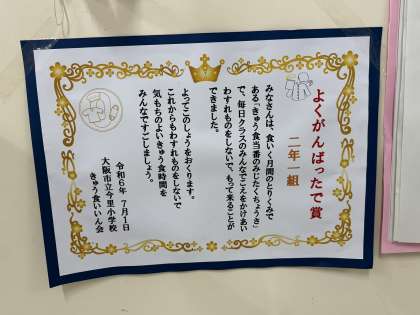 よくがんばったで賞
二年一組
みなさんは、食いく月間のとりくみで
ある「きゅう食当番のみじたくちょうき」
で、毎日クラスのみんなでこえをかけあい
わすれものをしないで、もって来ることが
できました。
よってこのしょうをおくります。
これからもわすれものをしないで
気もちのよいきゅう食時間を
みんなですごしましょう。
令和６年　７月１日
大阪市立今里小学校
きゅう食いいん会